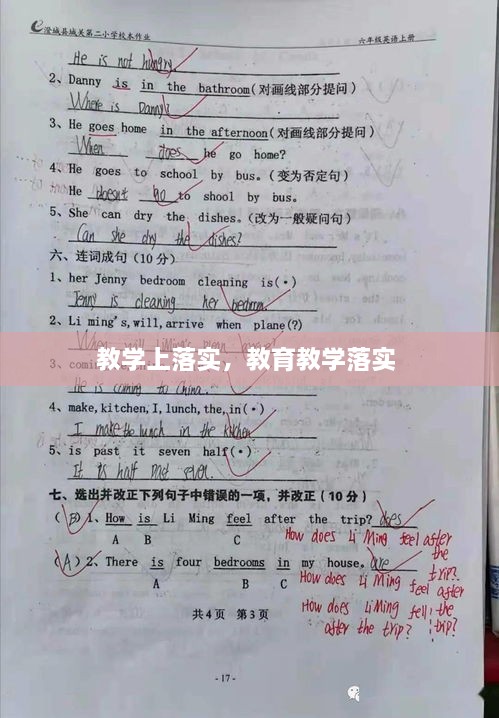 澄城县城关第二小学校本作业 六年级英语上册
He is not hungry.
2、Danny is in the bathroom(对画线部分提问)
Where is Danny?
3、He goes home in the afternoon(对画线部分提问)
When does he go home?
4、He goes to school by bus。(变为否定句)
He doesn't go to shool by bus.
5、She can dry the dishes。(改为一般疑问句)
Can she dry the dishes?
六、连词成句(10分)
1、her Jenny bedroom cleaning is(·)
Jenny is cleaning her bedroom.
2、Li ming's,will,arrive when plane(?)
教学上落实，教育教学落实
He is coming to China.
4、make,kitchen,I,lunch,the,in(·)
I make the lunch in the kitchen
5、is past it seven half(·)
It is half past seven.
七、选出并改正下列句子中错误的一项，并改正(10分)
(B)1、How is Li Ming feel after the trip? does
A B C
How does Li Ming feel after the trip?
(A)2、There is four bedrooms in my house。are
A B C
How does Li Ming feel after the trip?
How does Li Ming fell after the trip?
共4页 第3页
-17-